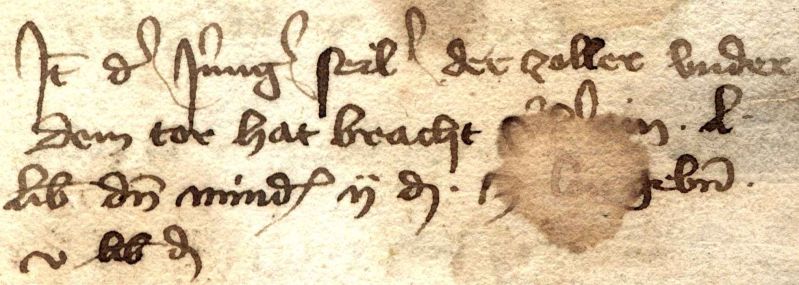 It d' Jung' seil' der zoller vnder
dem tor hat bracht
lib dn mind' ij d.
v lib d